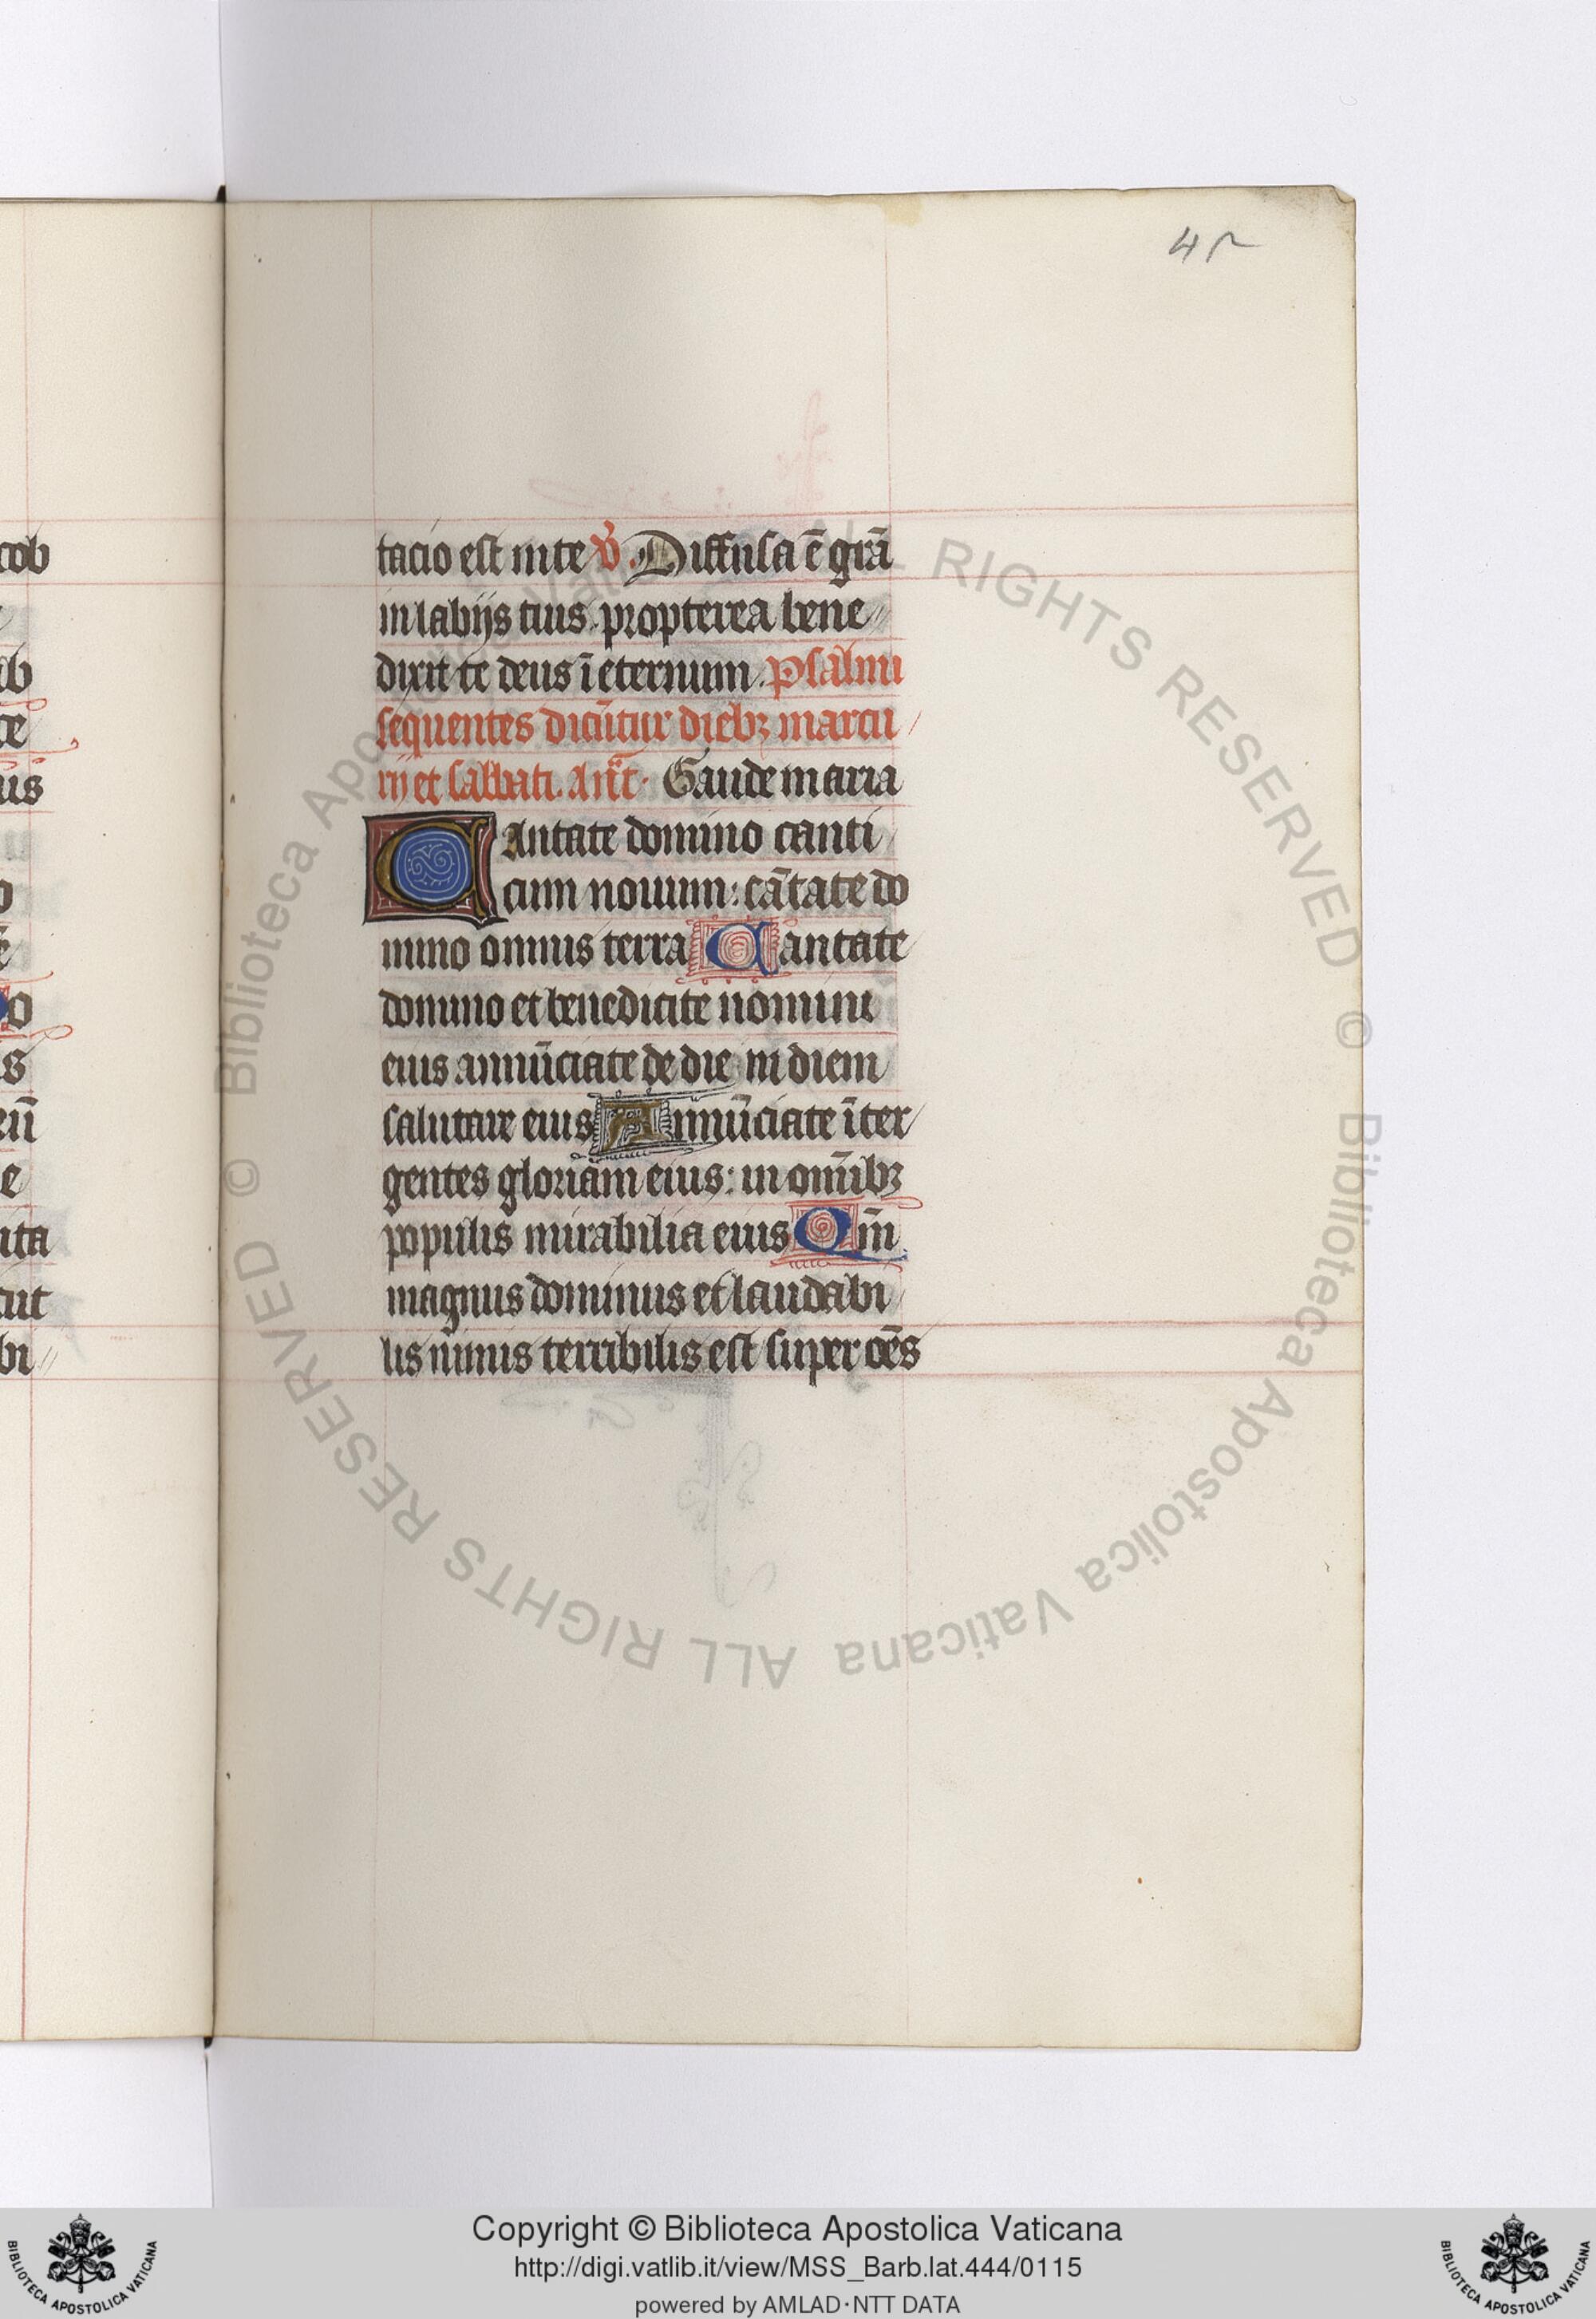 45
tacio est in te v̉. Diffusa ē grā
in labijs tuis. propterea bene
dixit te deus ī eternum. Psalmi
sequentes dicūtur diebꝫ mercu
rij et sabbati. Ant̄. Gaude maria
Cantate domino canti
cum nouum: cātate do
mino omnis terra Cantate
domino et benedicite nomini
eius annūciate de die in diem
salutare eius Annūciate īter
gentes gloriam eius: in omībꝫ
populis mirabilia eius Qm̄
magnus dominus et laudabi
lis nimis terribilis est super oēs
cob
ab
te
us
o
o
s
e
ita
tut
bi
© Biblioteca Apostolica Vaticana ALL RIGHTS RESERVED
© Biblioteca Apostolica Vaticana ALL RIGHTS RESERVED
BIBLIOTECA APOSTOLICA VATICANA
Copyright © Biblioteca Apostolica Vaticana
http://digi.vatlib.it/view/MSS_Barb.lat.444/0115
powered by AMLAD·NTT DATA
BIBLIOTECA APOSTOLICA VATICANA